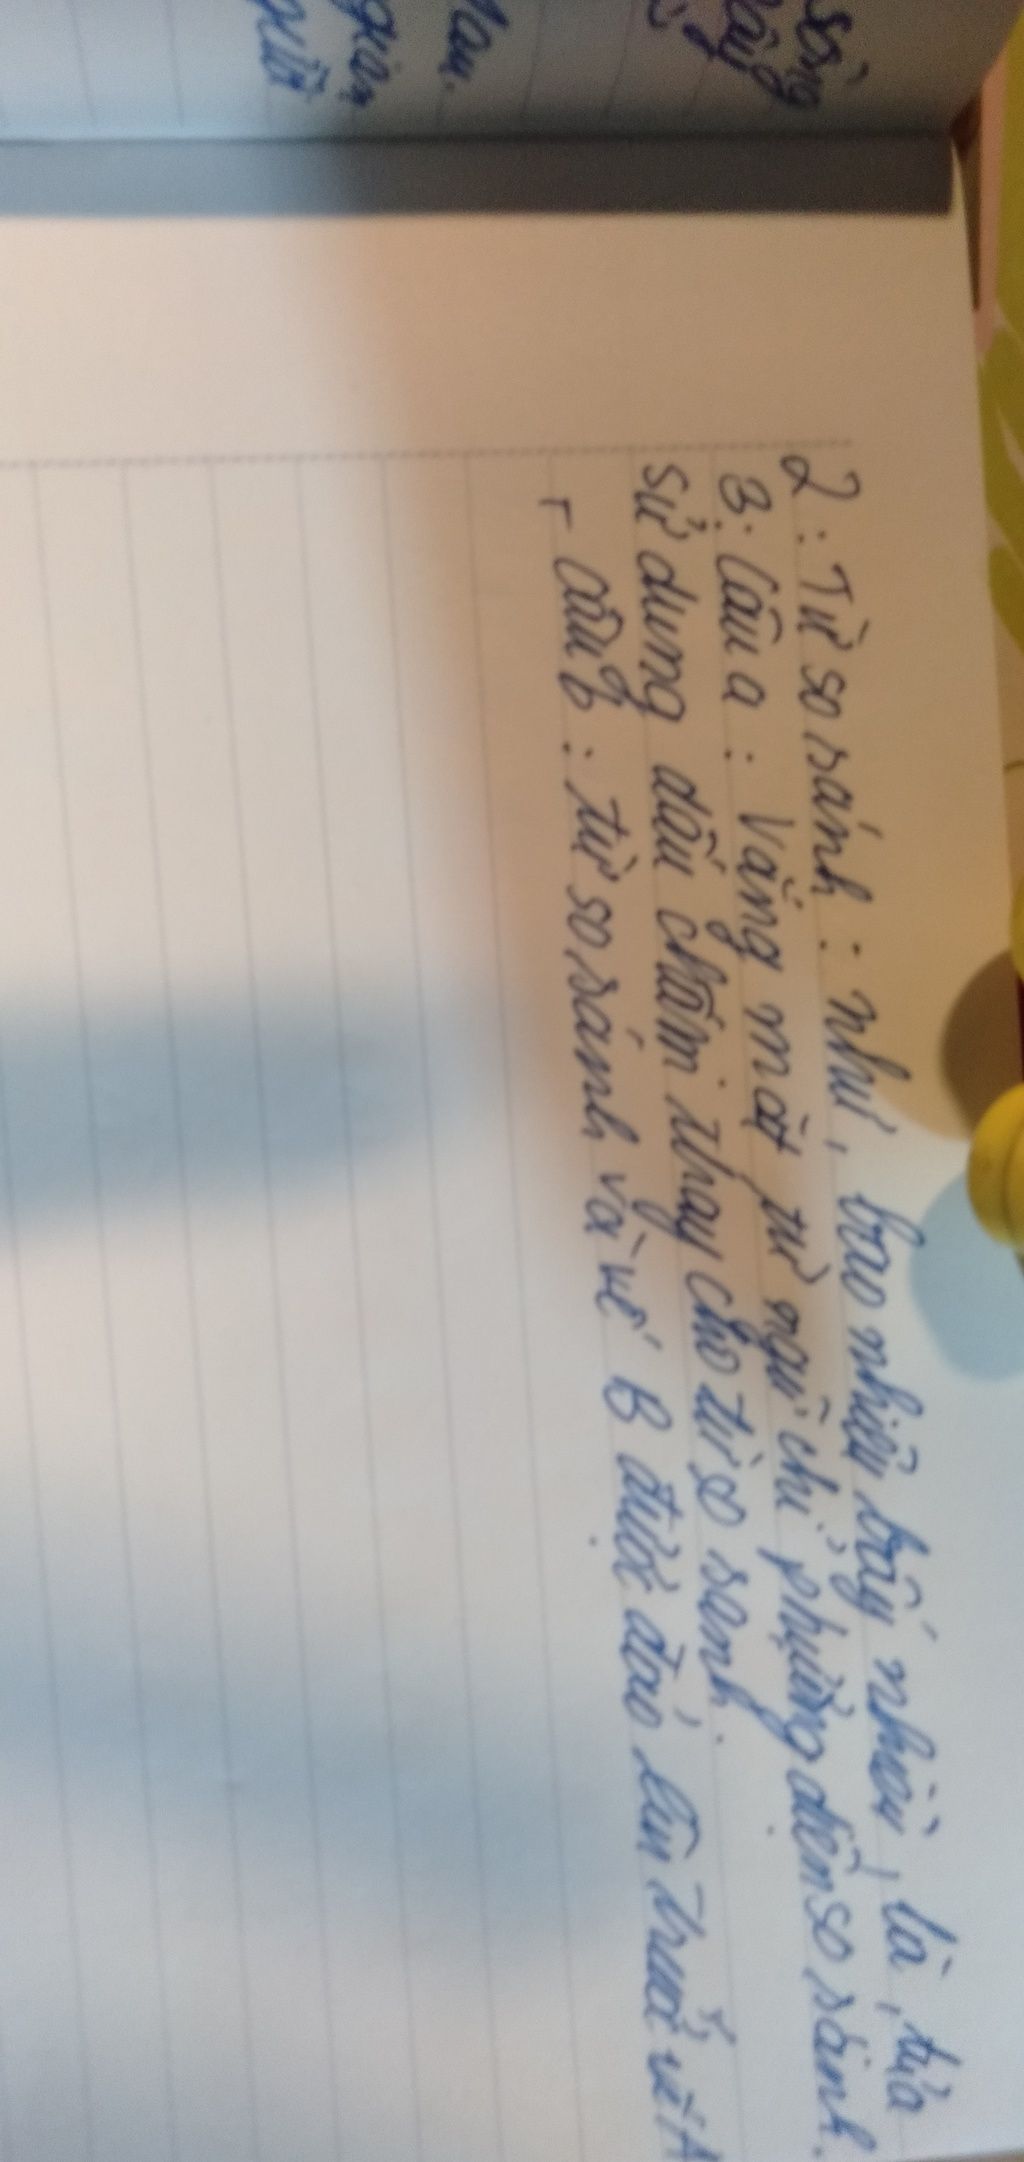 2: Từ so sánh: như, bao nhiêu bấy nhiêu, là, tựa
3. Câu a: Vắng mặt từ ngữ chỉ phương diện so sánh.
sử dụng dấu chấm thay cho từ so sánh.
- câu b: từ so sánh và vế B được đảo lên trước vế A